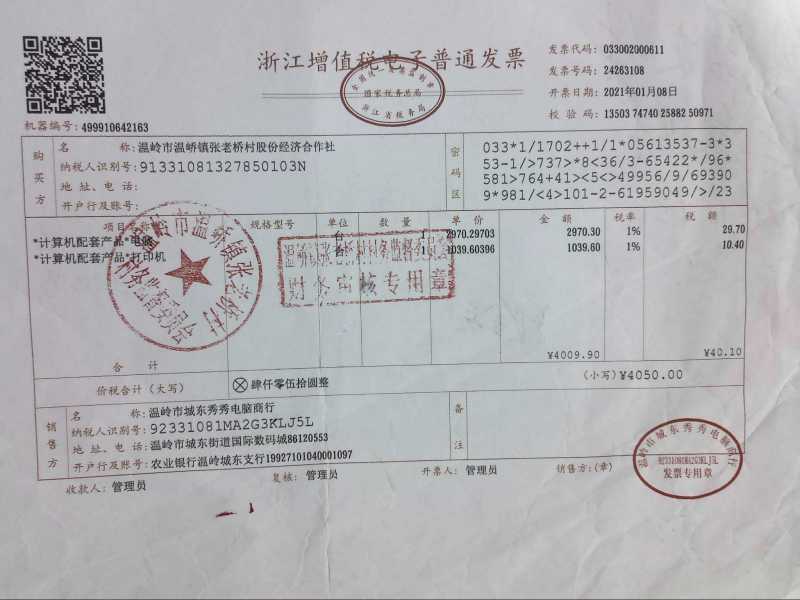 浙江增值税电子普通发票
发票代码: 033002000611
发票号码: 24263108
开票日期: 2021年01月08日
校验码: 13503 74740 25882 50971
机器编号: 499910642163
全国统一发票监制章
国家税务总局
浙江省税务局
购买方
名 称: 温岭市温峤镇张老桥村股份经济合作社
纳税人识别号: 91331081327850103N
地址、电话:
开户行及账号:
密码区
033*1/1702++1/1*05613537-3*3
53-1/>737>*8<36/3-65422*/96*
581>764+41><5<>49956/9/69390
9*981/<4>101-2-61959049/>/23
项目名称 规格型号 单位 数量 单价 金额 税率 税额
*计算机配套产品*电脑 台 1 2970.29703 2970.30 1% 29.70
*计算机配套产品*打印机 台 1 1039.60396 1039.60 1% 10.40
温岭市温峤镇张老桥村
村务监督委员会
温岭市温峤镇张老桥村村务监督委员会
财务审核专用章
合 计 ¥4009.90 ¥40.10
价税合计(大写) ⊗肆仟零伍拾圆整 (小写)¥4050.00
销售方
名 称: 温岭市城东秀秀电脑商行
纳税人识别号: 92331081MA2G3KLJ5L
地址、电话: 温岭市城东街道国际数码城86120553
开户行及账号: 农业银行温岭城东支行19927101040001097
备注
收款人: 管理员 复核: 管理员 开票人: 管理员 销售方:(章)
温岭市城东秀秀电脑商行
92331081MA2G3KLJ5L
发票专用章